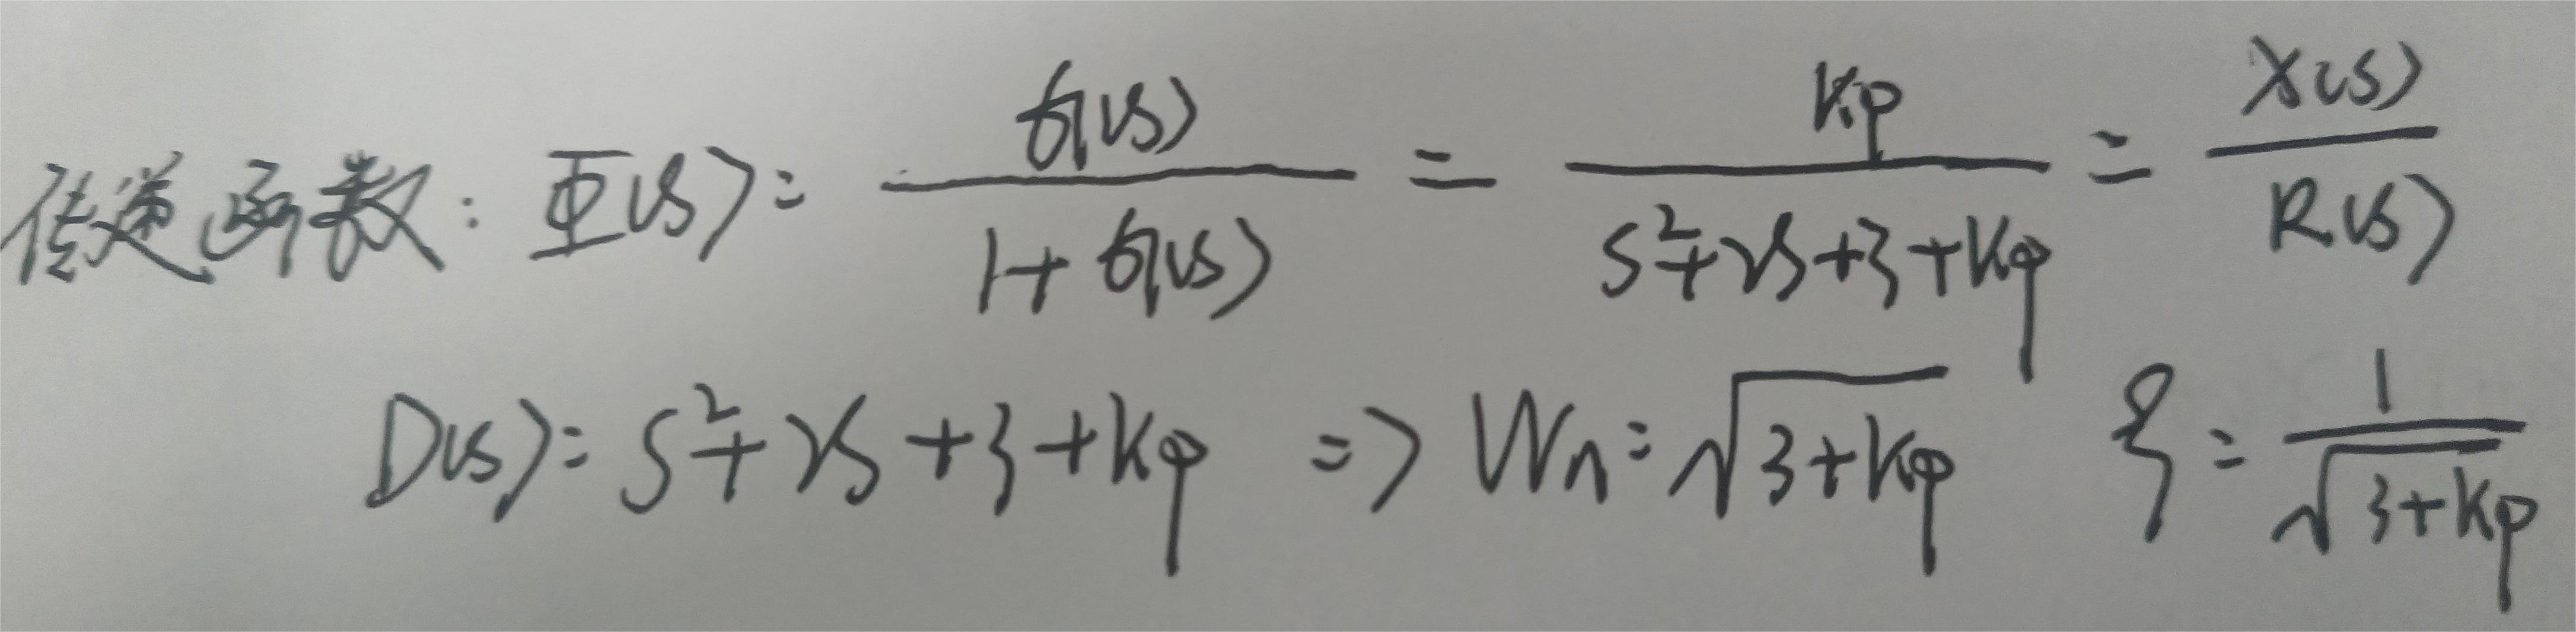 传递函数: Φ(s) = G(s) / (1 + G(s)) = Kp / (s² + 2s + 3 + Kp) = X(s) / R(s)
D(s) = s² + 2s + 3 + Kp => Wn = √(3 + Kp) ξ = 1 / √(3 + Kp)